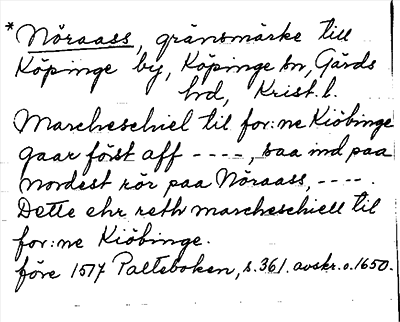 * Nöraass, gränsmärke till
Köpinge by, Köpinge sn, Gärds
hd, Krist. l.
Marcheschiel til for:ne Kiöbinge
gaar först aff ----, saa ind paa
nordest rör, paa Nöraass, ----.
Dette ehr reth marcheschiell til
for:ne Kiöbinge.
före 1517 Palteboken, s. 361. avskr. o. 1650.